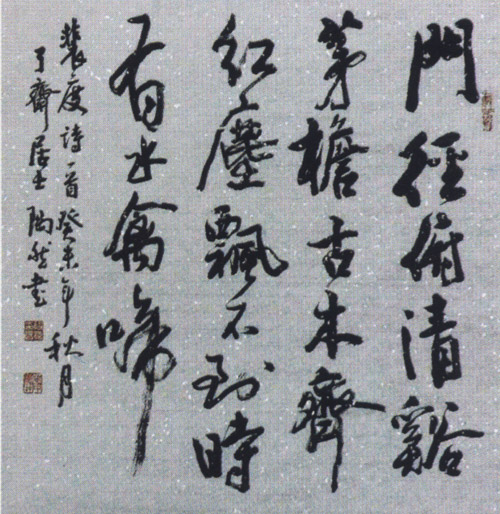 門徑俯清谿
茅檐古木齊
紅塵飄不到時
有水禽啼
裴度詩一首癸未年秋月
了齋居士陶然書